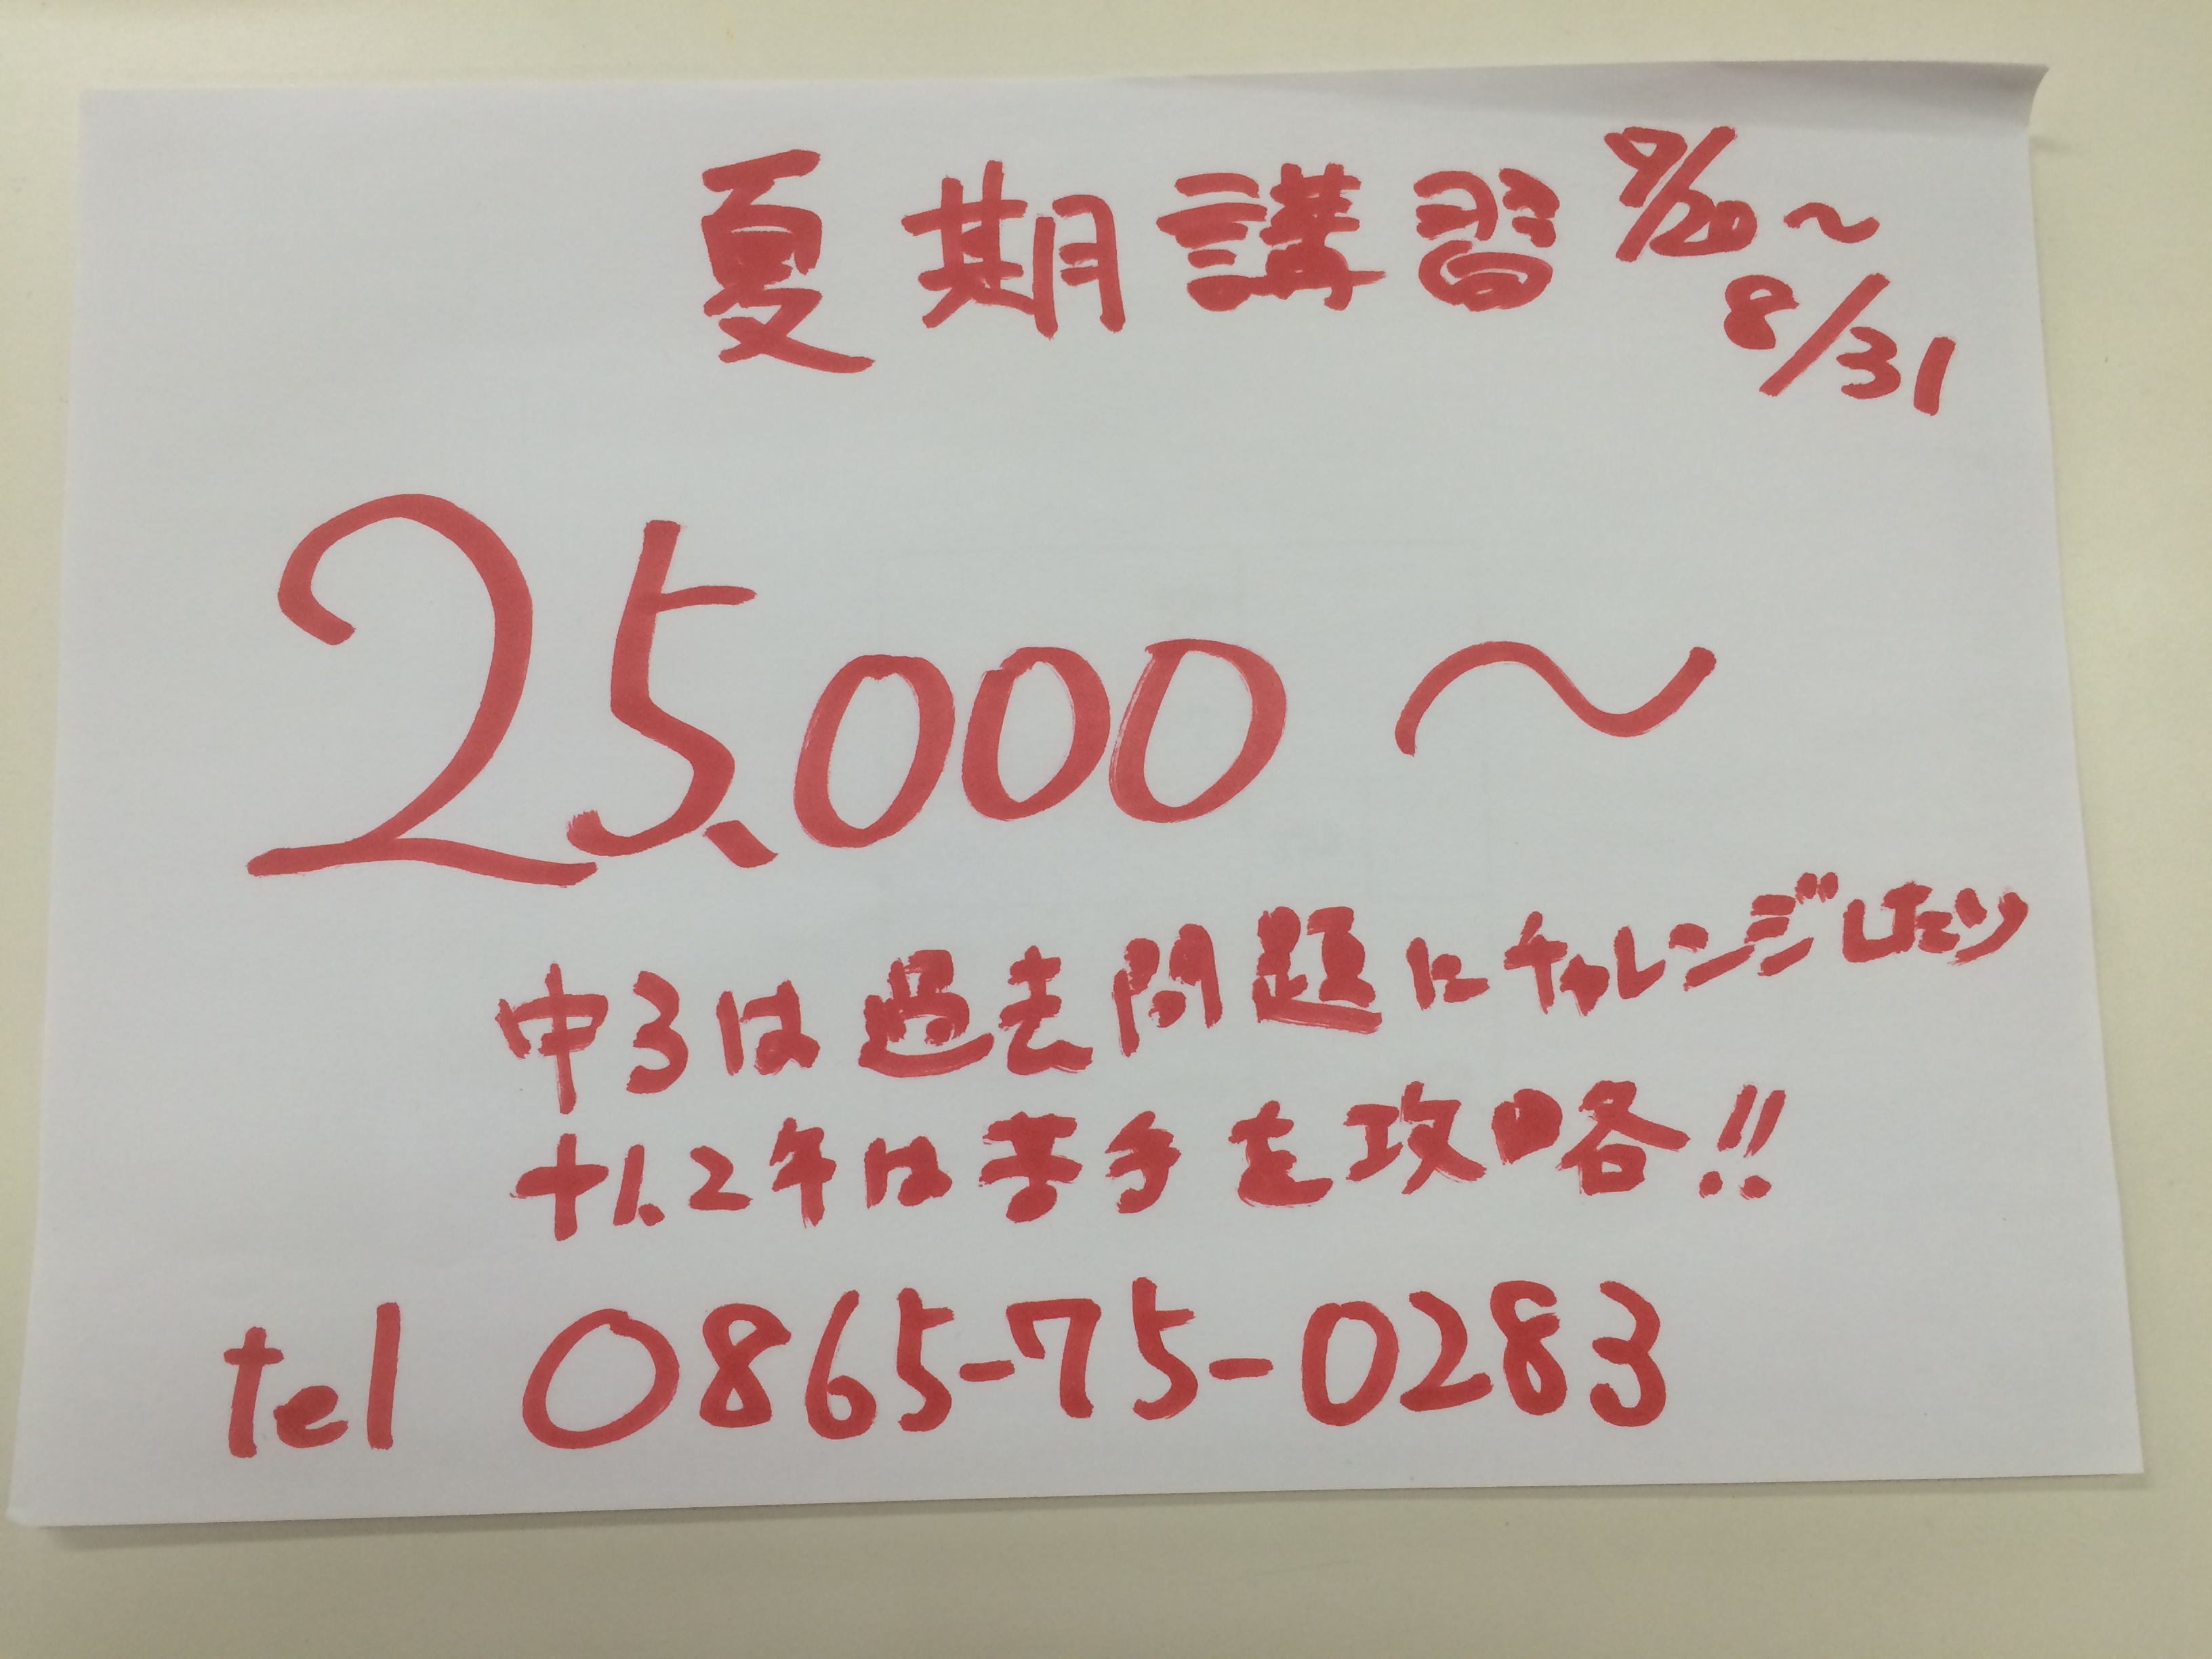 夏期講習 7/20～
8/31
25,000～
中3は過去問題にチャレンジしたり
中1、2年は苦手を攻略!!
tel 0865-75-0283